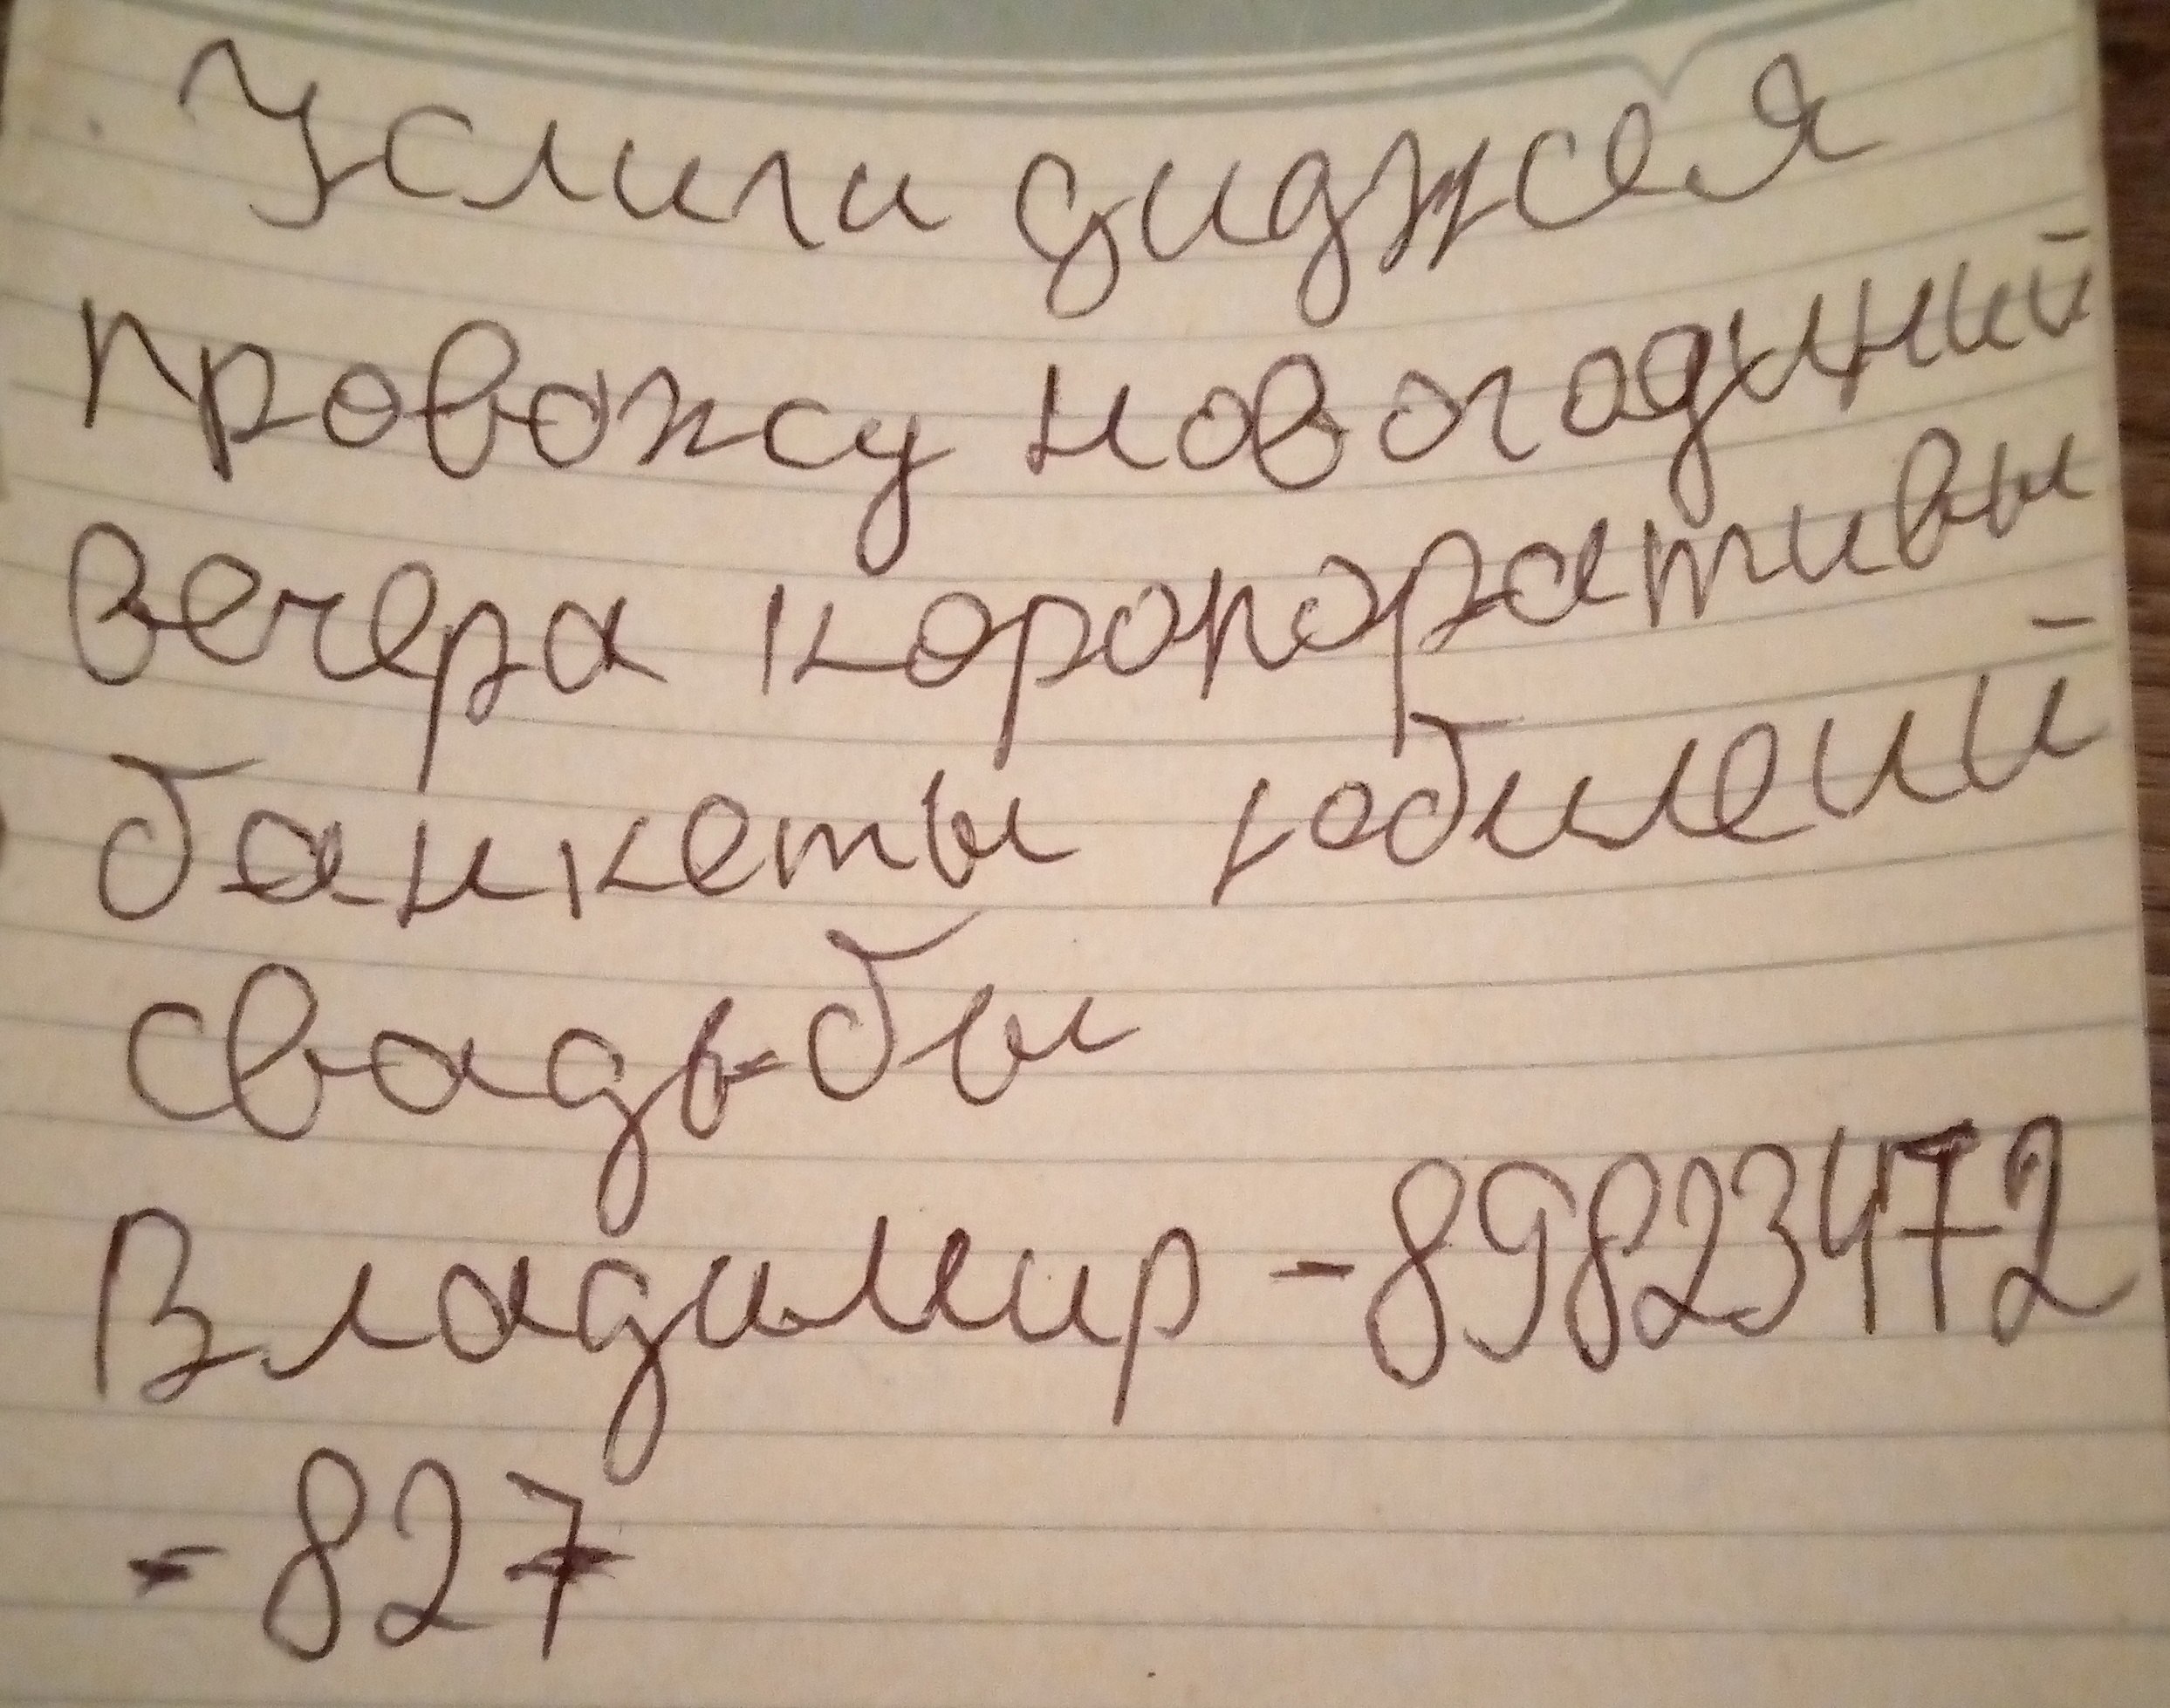 Услиги диджея
провожу новогодиний
вечера коропоративы
банкеты юбилеий
свадьбы
Владимир - 89823472
- 827